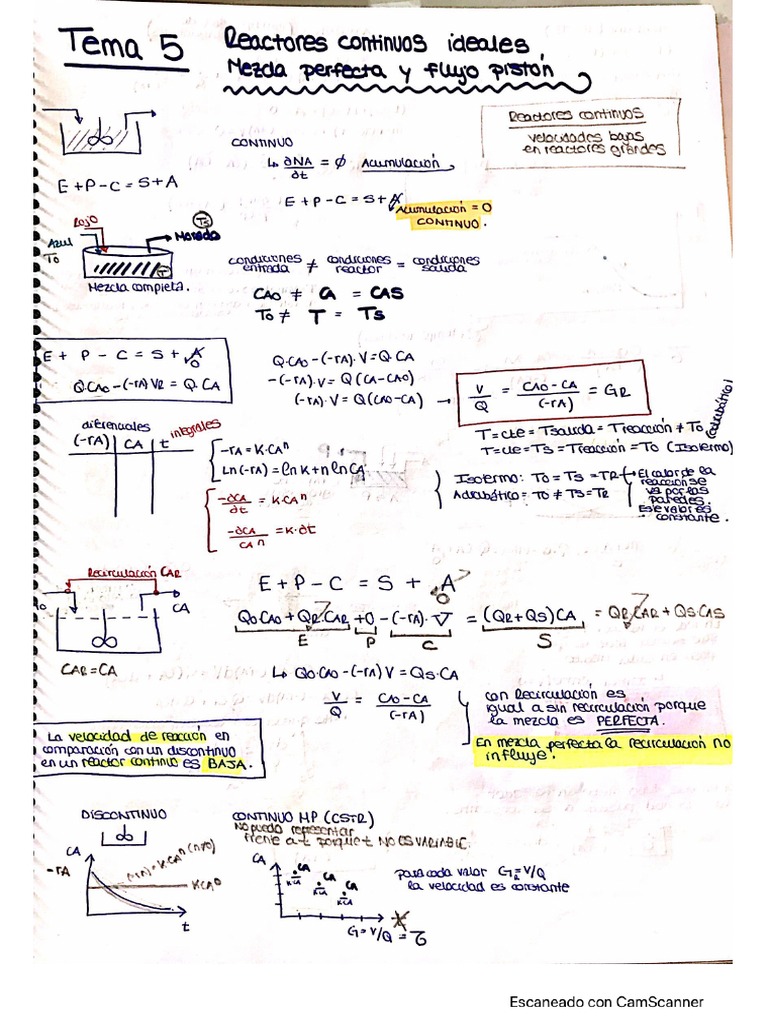 Tema 5
Reactores continuos ideales
Mezcla perfecta y flujo pistón
Reactores continuos
velocidades bajas
en reactores grandes
E+P-C=S+A
CONTINUO
↳ ∂NA/∂t = ∅ Acumulación
E+P-C=S+A
Acumulación = 0
CONTINUO.
Rojo
Azul
T0
Ts
Morado
T
Mezcla completa.
condiciones entrada ≠ condiciones reactor = condiciones salida
CA0 ≠ CA = CAS
T0 ≠ T = Ts
E + P - C = S + A
0
Q·CA0-(-rA)VR = Q·CA
Q·CA0-(-rA)·V=Q·CA
-(-rA)·V = Q(CA-CA0)
(-rA)·V = Q(CA0-CA) →
V/Q = CA0-CA/(-rA) = GR
T=cte=Tsalida=Treacción≠T0 (adiabático)
T=cte=Ts=Treacción=T0 (Isotermo)
diferenciales
integrales
(-rA) CA t
-rA=K·CA^n
Ln(-rA)=ln K+n ln CA
-∂CA/∂t = K·CA^n
-∂CA/CA^n = K·∂t
Isotermo: T0=Ts=TR
Adiabático: T0≠Ts=TR
El calor de la
reacción se
va por las
paredes.
Este valor es
constante.
Recirculación CAR
CA
CAR=CA
E+P-C = S + A
0
Q0CA0+QR·CAR+0-(-rA)·V = (QR+QS)CA = QR·CAR+QS·CAS
E P C S
↳ Q0·CA0-(-rA)V=QS·CA
V/Q = CA0-CA/(-rA)
con Recirculación es
igual a sin recirculación porque
la mezcla es PERFECTA.
En mezcla perfecta la recirculación no
influye.
La velocidad de reacción en
comparación con un discontinuo
en un reactor continuo es BAJA.
DISCONTINUO
CA
-rA
(-rA)=K·CA^n (n>0)
KCA^0
t
CONTINUO MP (CSTR)
No puedo representar
frente a t porque t NO ES VARIABLE.
CA
CA
KCA
CA
KCA
CA
KCA
t
G=V/Q = τ
para cada valor GR=V/Q
la velocidad es constante
Escaneado con CamScanner